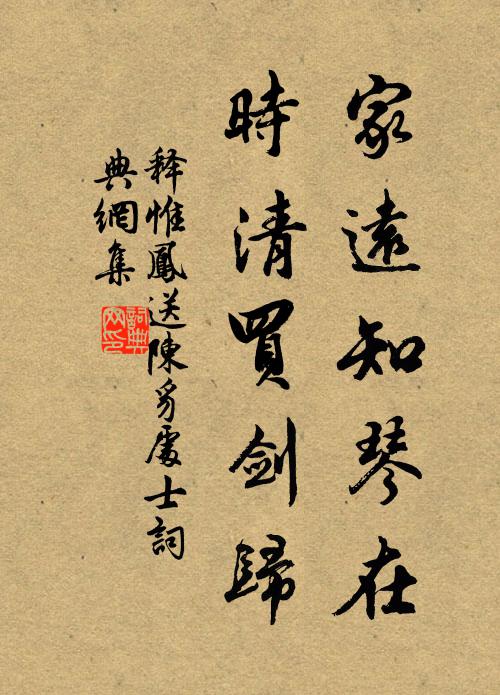 家遠知琴在
時清買劍歸
释惟鳳送陳豸處士詞
典網集
詞典
网印